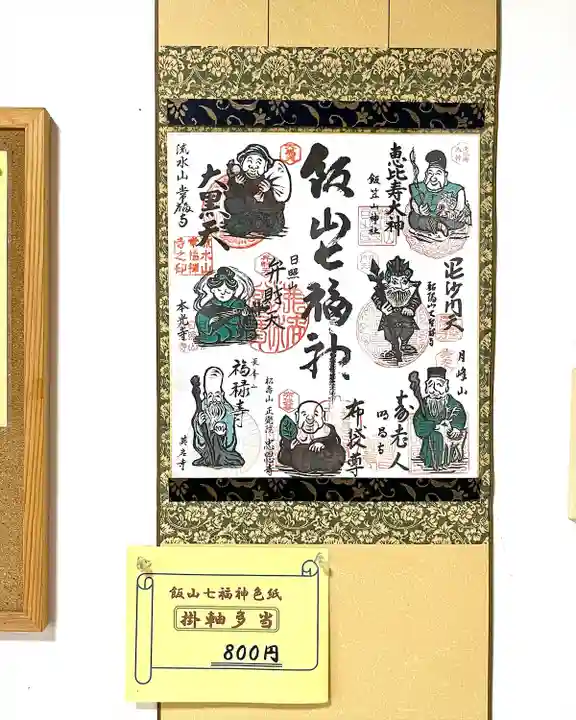 飯山七福神
恵比寿大神
飯笠山神社
毘沙門天
月峰山
寿老人
明昌寺
布袋尊
松寿山
忠恩寺
日照山
弁財天
本光寺
大黒天
流水山
福禄寿
英岩寺
飯山七福神色紙
掛軸多当
800円